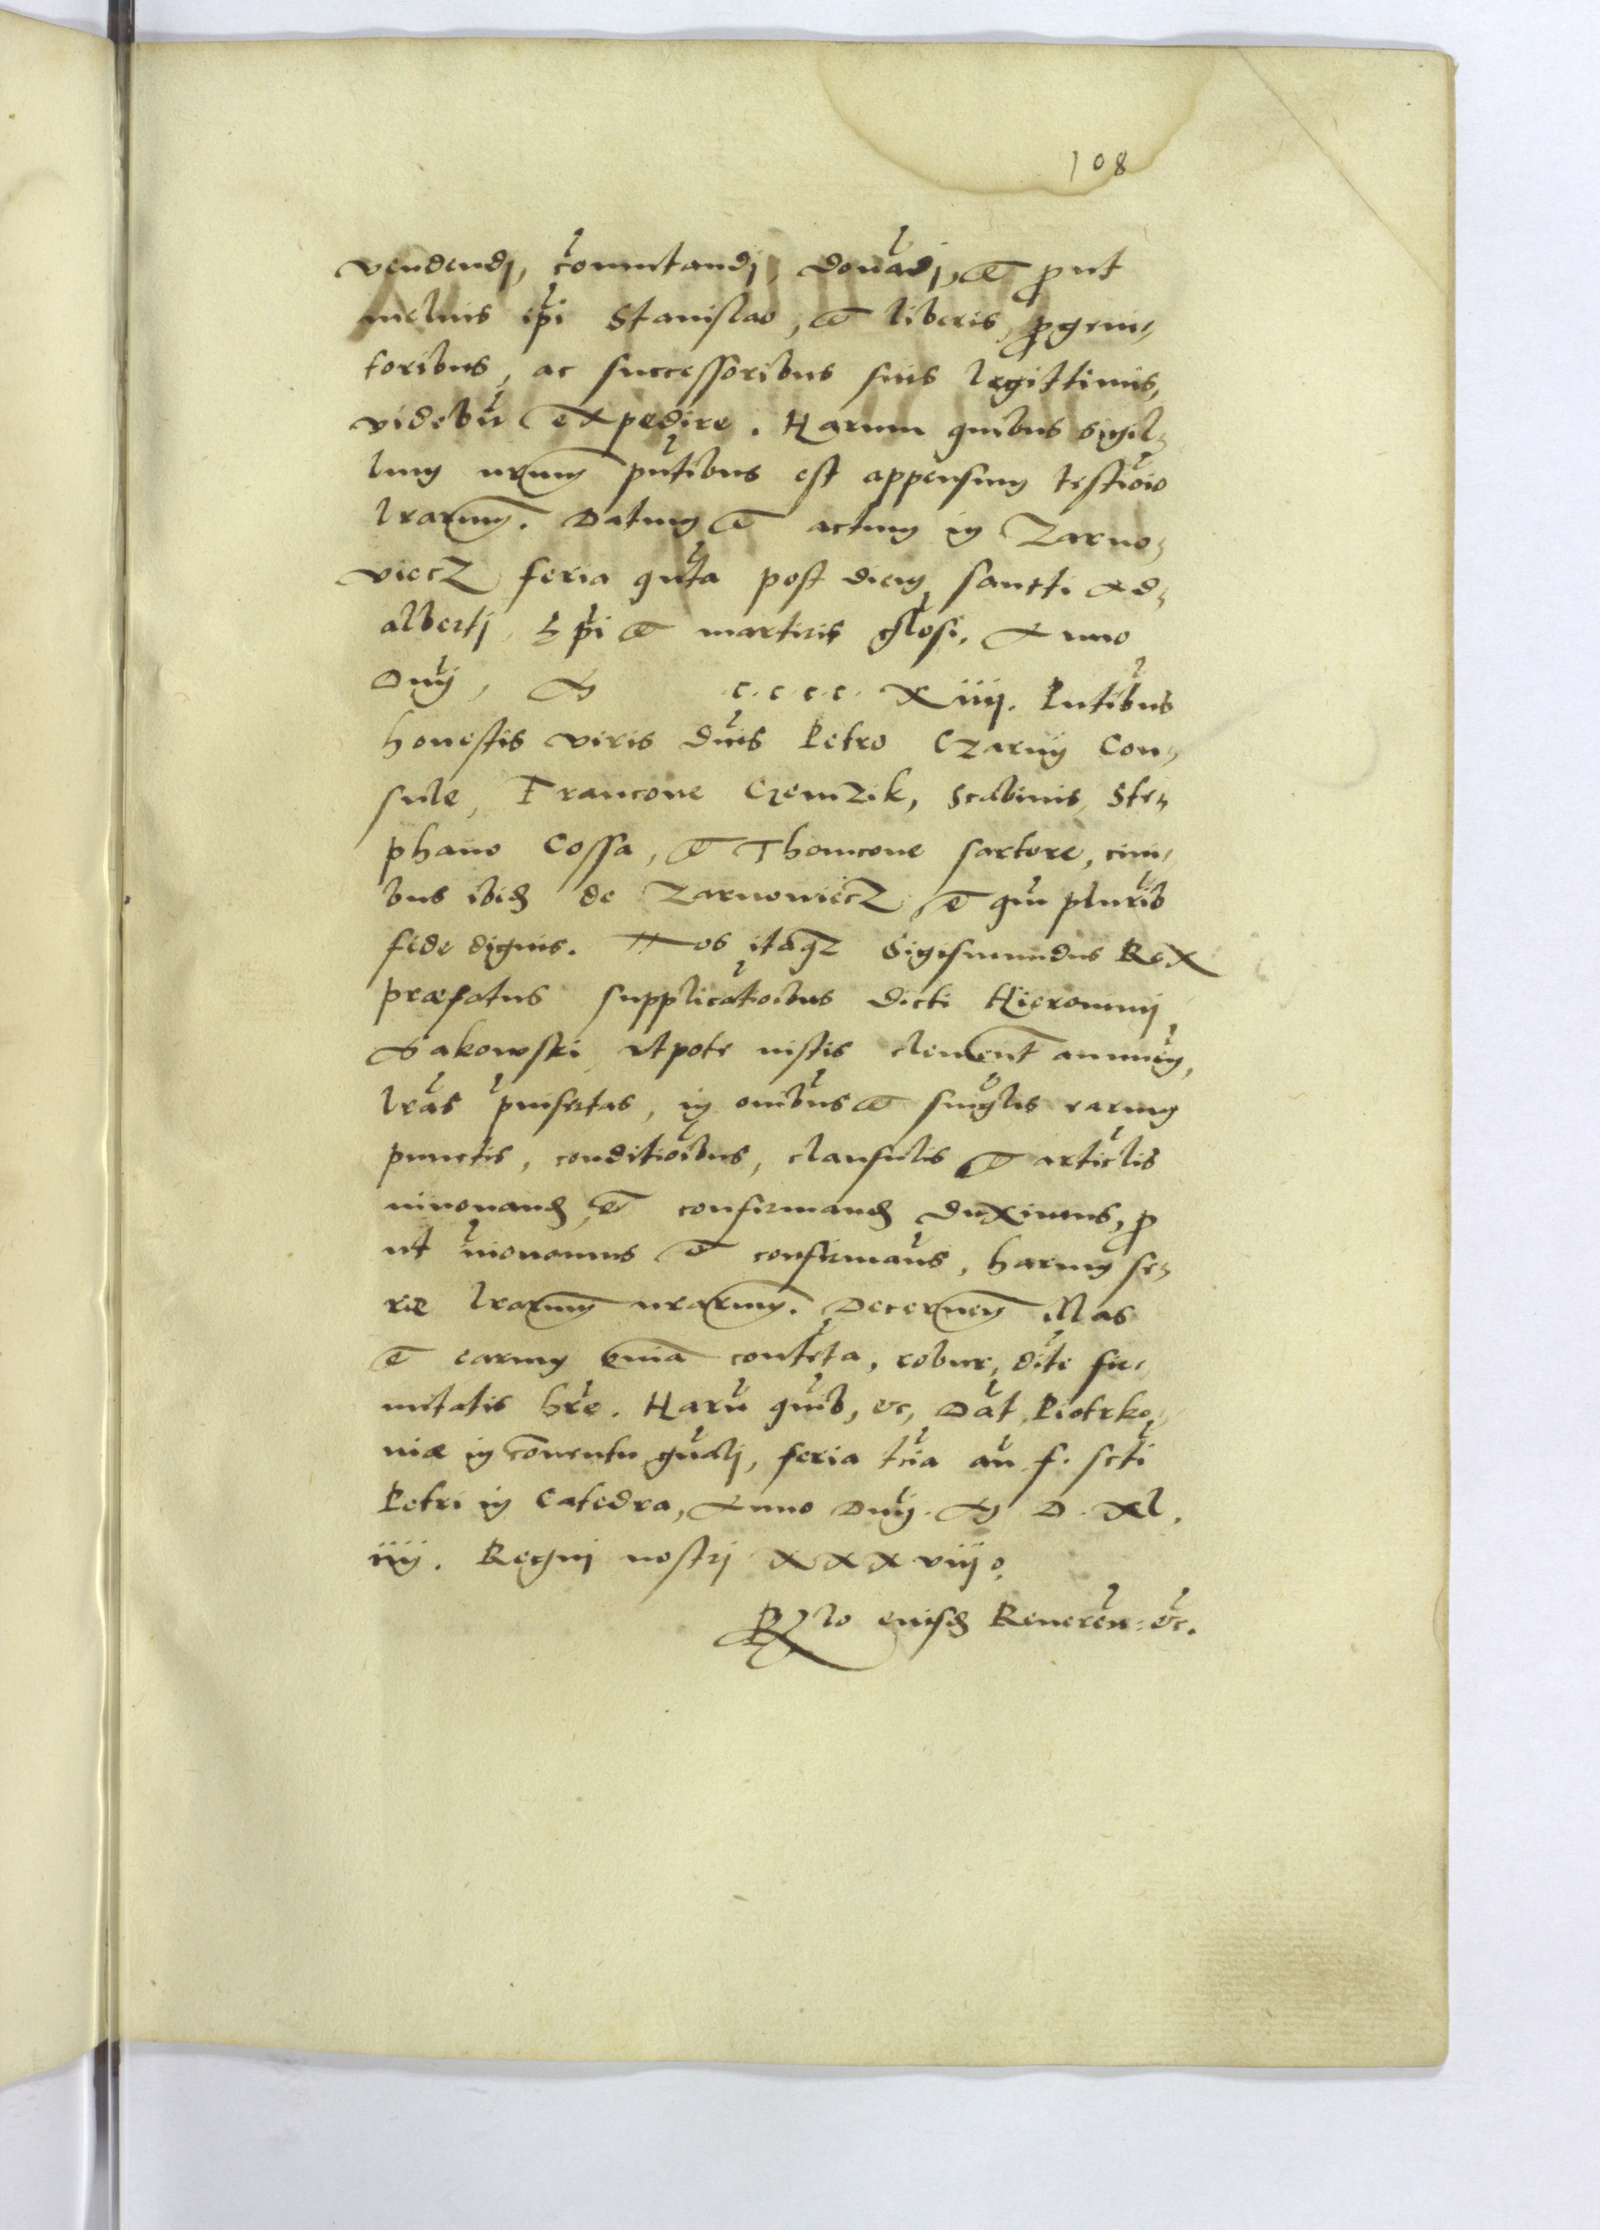 108
vendendj, com̄utandj, donādj, et ꝓut
melius ip̄i Stanislao, et liberis ꝓgeni-
toribus, ac successoribus suis legittimis,
videbit̄ expedire. Harum quibus sigil-
lum nr̄um pn̄tibus est appensum testīoio
lrarum. Datum et actum in Zarno-
viecz feria quīta post diem sancti Ad-
albertj Ep̄i et martiris gl̄osi. Anno
Dnī, M cccc Xiiij. Pn̄tibus
honestis viris dn̄is Petro Czarnÿ Con-
sule, Francone Czemzik, Scabinis, Ste-
phano Cossa, et Thomcone sartore, ciui-
bus ibidem de Zarnowiecz et qm̄ pluribꝰ
fide dignis. Nos itaqz Sigismundus Rex
præfatus supplicatioībus dicti Hieronimi
Makowski, vtpote iustis clement̄ annuen̄,
lrās p̄insertas, in om̄ibus et singlis earum
punctis, conditioībus, clausulis et articl̄is
innouand̄ et confirmand̄ duximus, ꝓ
ut in̄nouamus et confirmam̄s, harum se-
rie lrarum nrarum. Decernen̄ illas
et earum om̄ia contēta, robur, dite fir-
mitatis hr̄e. Harū quib, &c, Dat̄ Piotrko-
niæ in conuentu gn̄alj, feria tcīa an̄ f. sctī
Petri in Catedra, Anno Dnī. M D. Xl.
iiij. Regnj nostrj XXXviij o.
Rlo eiusd̄ Reueren̄: &c.